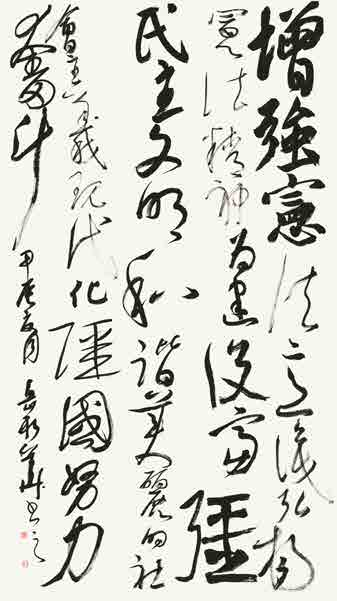 增強憲法意識弘揚
憲法精神為建設富彊
民主文明和諧美麗的社
會主義現代化彊國努力
奮斗 甲辰 月 岳 書